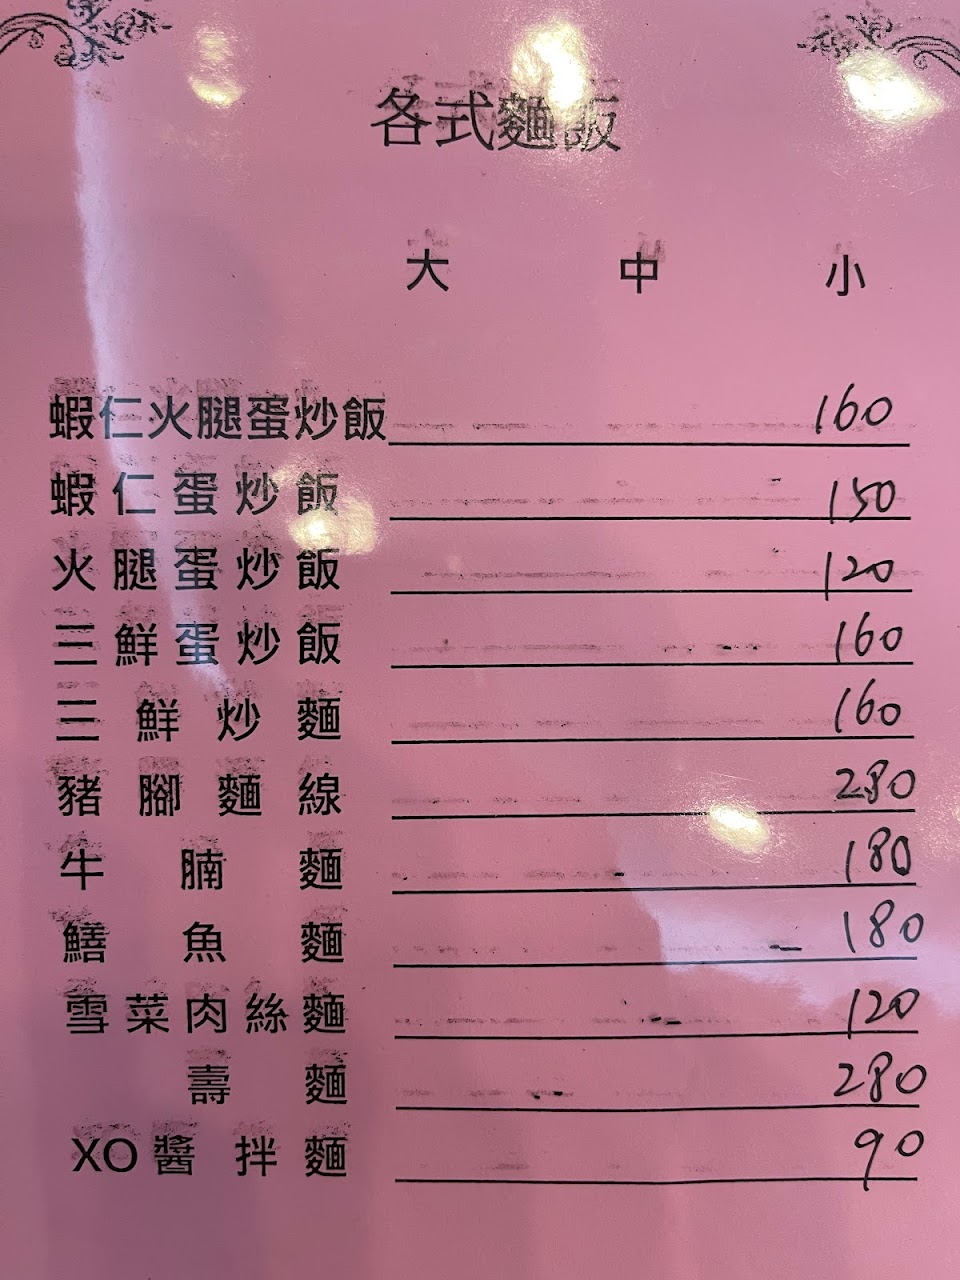 各式麵飯
大 中 小
蝦仁火腿蛋炒飯 160
蝦仁蛋炒飯 150
火腿蛋炒飯 120
三鮮蛋炒飯 160
三鮮炒麵 160
豬腳麵線 280
牛腩麵 180
鱔魚麵 180
雪菜肉絲麵 120
壽麵 280
XO醬拌麵 90